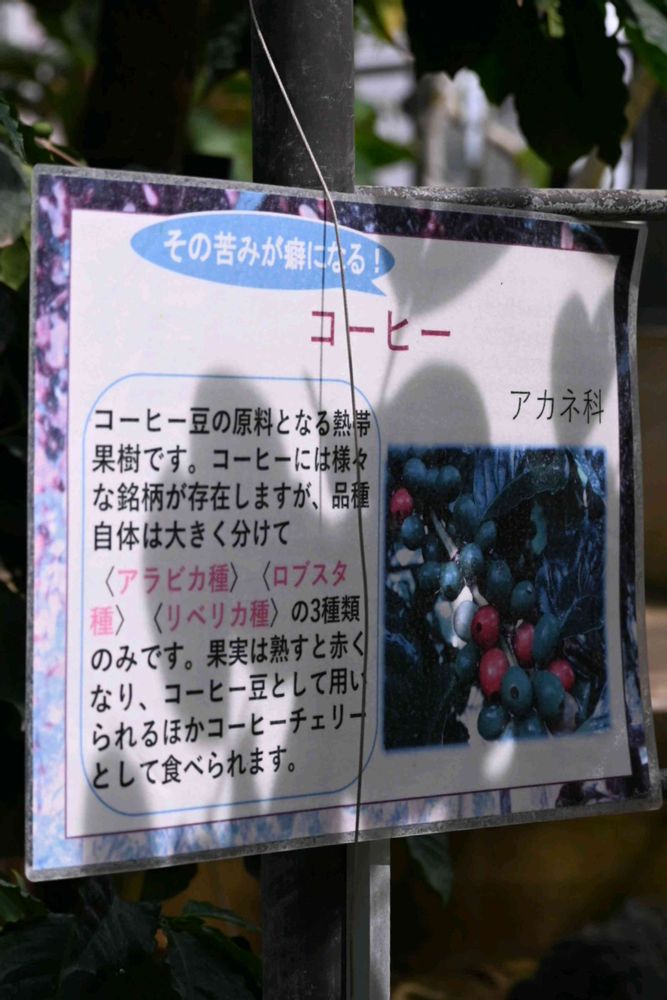 その苦みが癖になる！
コーヒー
アカネ科
コーヒー豆の原料となる熱帯
果樹です。コーヒーには様々
な銘柄が存在しますが、品種
自体は大きく分けて
〈アラビカ種〉〈ロブスタ
種〉〈リベリカ種〉の3種類
のみです。果実は熟すと赤く
なり、コーヒー豆として用い
られるほかコーヒーチェリー
として食べられます。